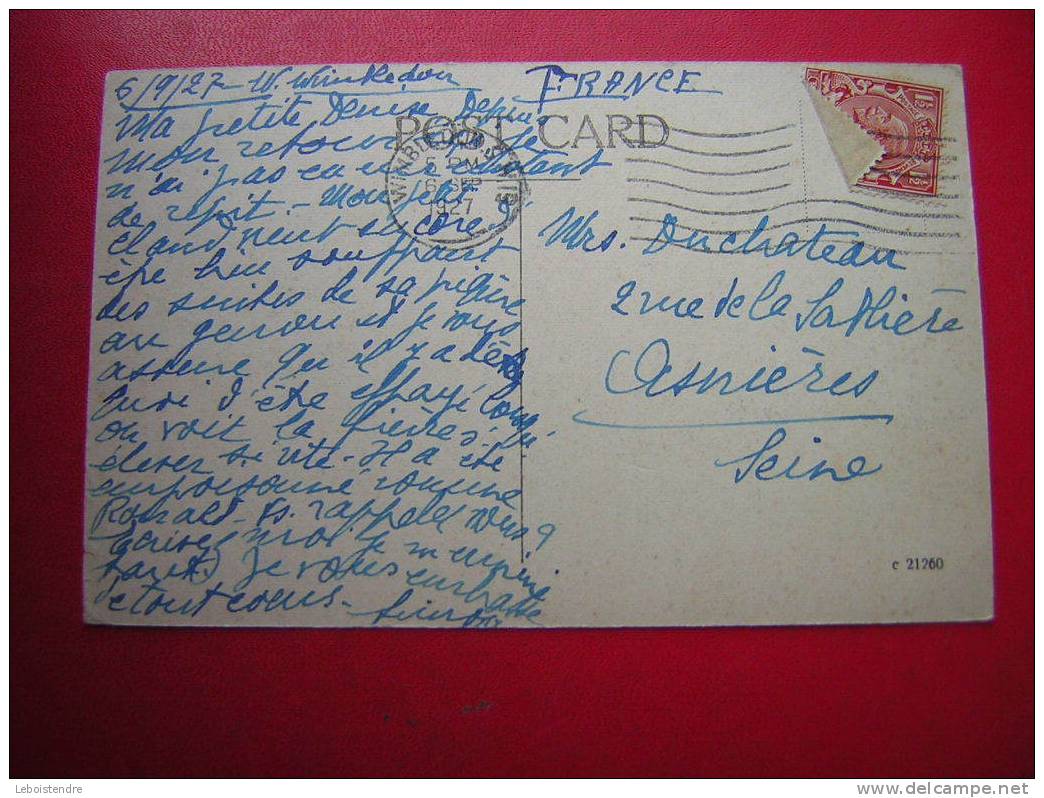 6/9/27 W. Wimbledon
FRANCE
Ma petite Denise Depuis
POST CARD
mon retour je
n'ai pas eu un instant
de répit. - Mon petit
WIMBLEDON S.W.19
5 PM
6 SEP
1927
été bien souffrant
des suites de sa piqûre
au genou et je vous
assure qu'il y a de
quoi d'être effrayé
on voit la fièvre s'
élever si vite. Il a été
empoisonné comme
Ronald. Vs. rappelez vous ?
Ecrivez moi je m'ennuie
tant. Je vous embrasse
de tout cœur -
Mrs. Duchateau
2 rue de la Sablière
Asnières
Seine
c 21260
Leboistendre
delcampe.net